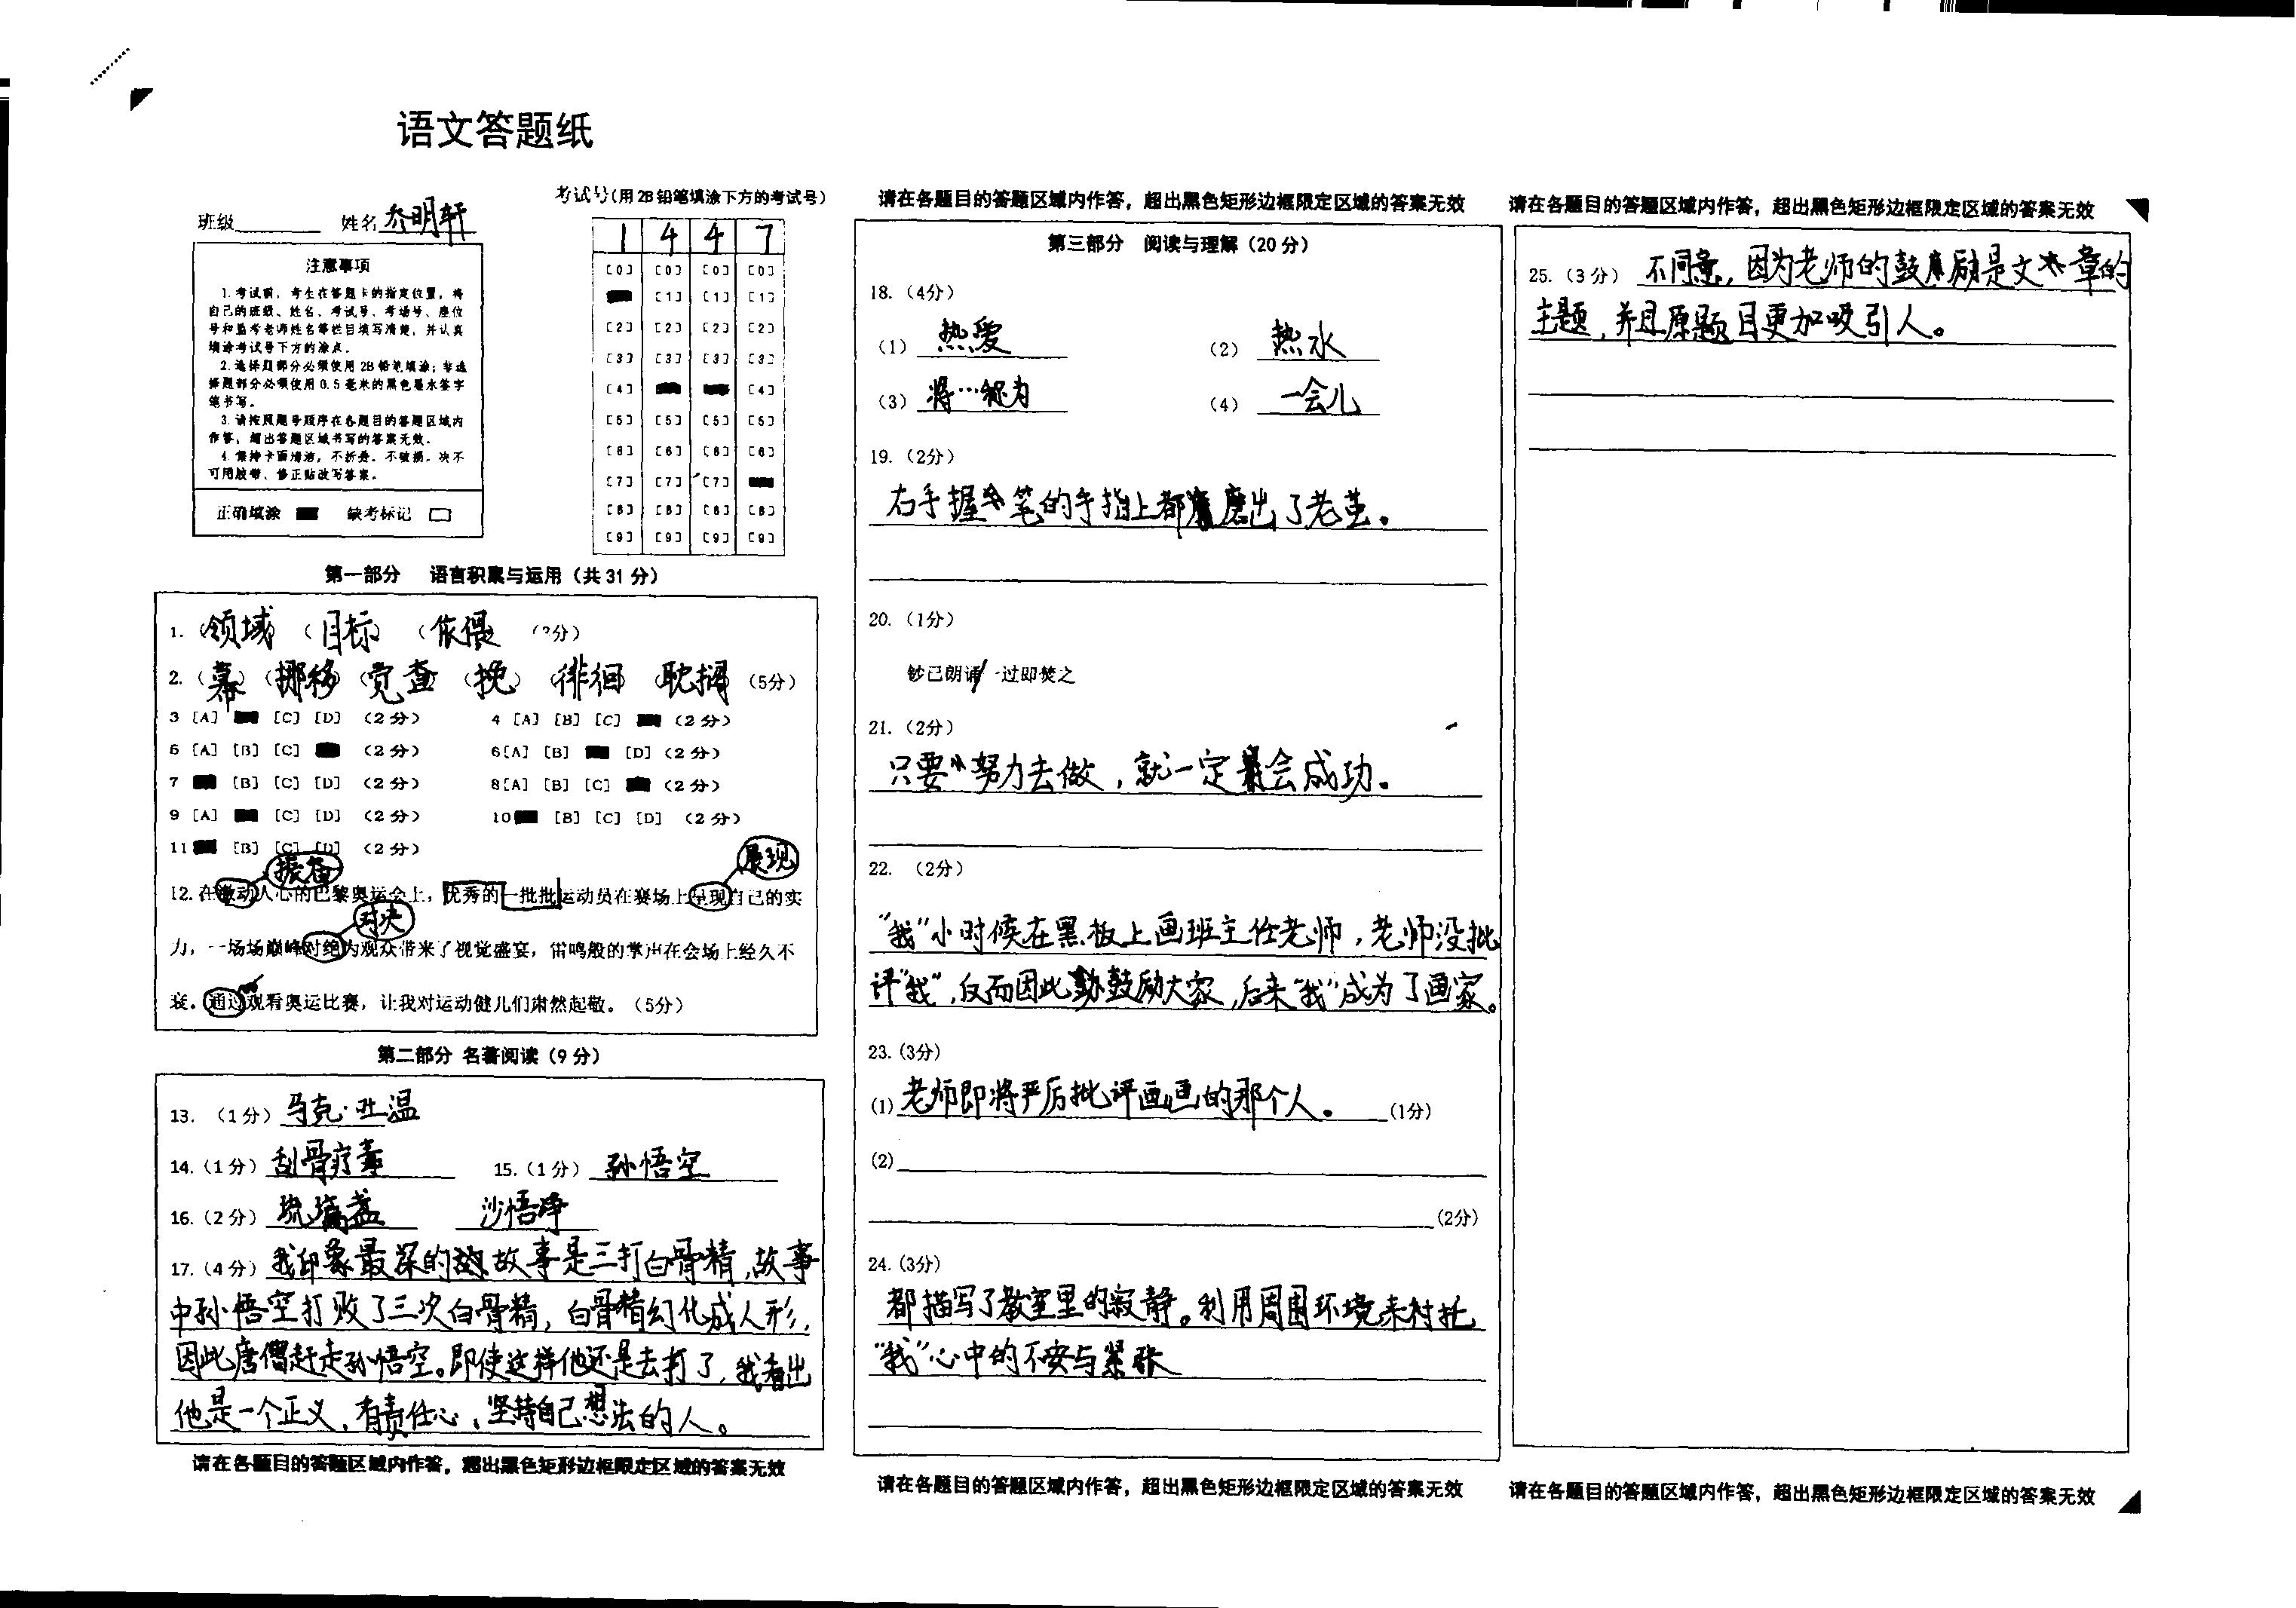 语文答题纸
考试号(用2B铅笔填涂下方的考试号)
班级 姓名 乔明轩
1 4 4 7
注意事项
1.考试前,考生在答题卡的指定位置,将
自己的班级、姓名、考试号、考场号、座位
号和监考老师姓名等栏目填写清楚,并认真
填涂考试号下方的涂点。
2.选择题部分必须使用2B铅笔填涂;非选
择题部分必须使用0.5毫米的黑色墨水签字
笔书写。
3.请按照题号顺序在各题目的答题区域内
作答,超出答题区域书写的答案无效。
4.保持卡面清洁,不折叠、不破损。决不
可用胶带、修正贴改写答案。
正确填涂 缺考标记
[0] [0] [0] [0]
[1] [1] [1]
[2] [2] [2] [2]
[3] [3] [3] [3]
[4] [4]
[5] [5] [5] [5]
[6] [6] [6] [6]
[7] [7] [7]
[8] [8] [8] [8]
[9] [9] [9] [9]
第一部分 语言积累与运用(共31分)
1.(领域)(目标)(依偎 (3分)
2.(幕)(挪移)(党查 (挽)(徘徊)(耽搁 (5分)
3 [A] [C] [D] (2分) 4 [A] [B] [C] (2分)
5 [A] [B] [C] (2分) 6[A] [B] [D] (2分)
7 [B] [C] [D] (2分) 8[A] [B] [C] (2分)
9 [A] [C] [D] (2分) 10 [B] [C] [D] (2分)
11 [B] [C] [D] (2分)
振奋 展现
12.在激动人心的巴黎奥运会上,优秀的一批批运动员在赛场上呈现自己的实
对决
力,一场场巅峰对绝为观众带来了视觉盛宴,雷鸣般的掌声在会场上经久不
衰。通过观看奥运比赛,让我对运动健儿们肃然起敬。(5分)
第二部分 名著阅读(9分)
13.(1分)马克·吐温
14.(1分)刮骨疗毒 15.(1分)孙悟空
16.(2分)琉璃盏 沙悟净
17.(4分)我印象最深的故事是三打白骨精,故事
中孙悟空打败了三次白骨精,白骨精幻化成人形,
因此唐僧赶走孙悟空。即使这样他还是去打了,我看出
他是一个正义、有责任心、坚持自己想法的人。
请在各题目的答题区域内作答,超出黑色矩形边框限定区域的答案无效
请在各题目的答题区域内作答,超出黑色矩形边框限定区域的答案无效
第三部分 阅读与理解(20分)
18.(4分)
(1) 热爱 (2) 热水
(3) 将…称为 (4) 一会儿
19.(2分)
右手握笔的手指上都磨出了老茧。
20.(1分)
钞已朗诵/一过即焚之
21.(2分)
只要努力去做,就一定会成功。
22.(2分)
“我”小时候在黑板上画班主任老师,老师没批
评“我”,反而因此鼓励大家,后来“我”成为了画家。
23.(3分)
(1)老师即将严厉批评画画的那个人。(1分)
(2)
(2分)
24.(3分)
都描写了教室里的寂静。利用周围环境来衬托
“我”心中的不安与紧张
请在各题目的答题区域内作答,超出黑色矩形边框限定区域的答案无效
请在各题目的答题区域内作答,超出黑色矩形边框限定区域的答案无效
25.(3分)不同意,因为老师的鼓励是文章的
主题,并且原题目更加吸引人。
请在各题目的答题区域内作答,超出黑色矩形边框限定区域的答案无效